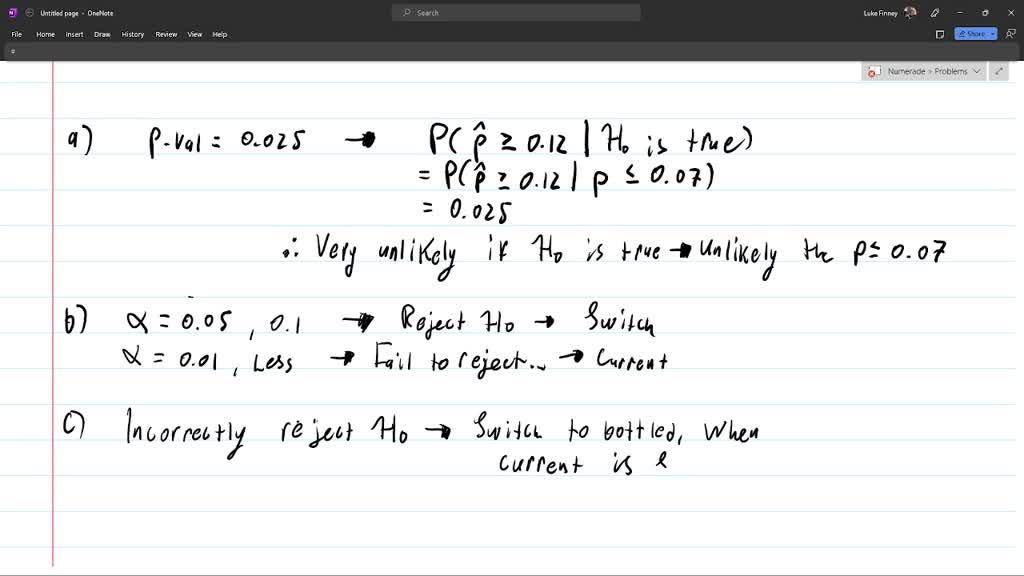 Untitled page - OneNote
Search
Luke Finney
File Home Insert Draw History Review View Help
Share
Numerade » Problems
a) p-val = 0.025 → P(p̂ ≥ 0.12 | H₀ is true)
= P(p̂ ≥ 0.12 | p ≤ 0.07)
= 0.025
∴ Very unlikely if H₀ is true → Unlikely the p ≤ 0.07
b) α = 0.05, 0.1 → Reject H₀ → Switch
α = 0.01, Less → Fail to reject... → Current
c) Incorrectly reject H₀ → Switch to bottled, when
current is